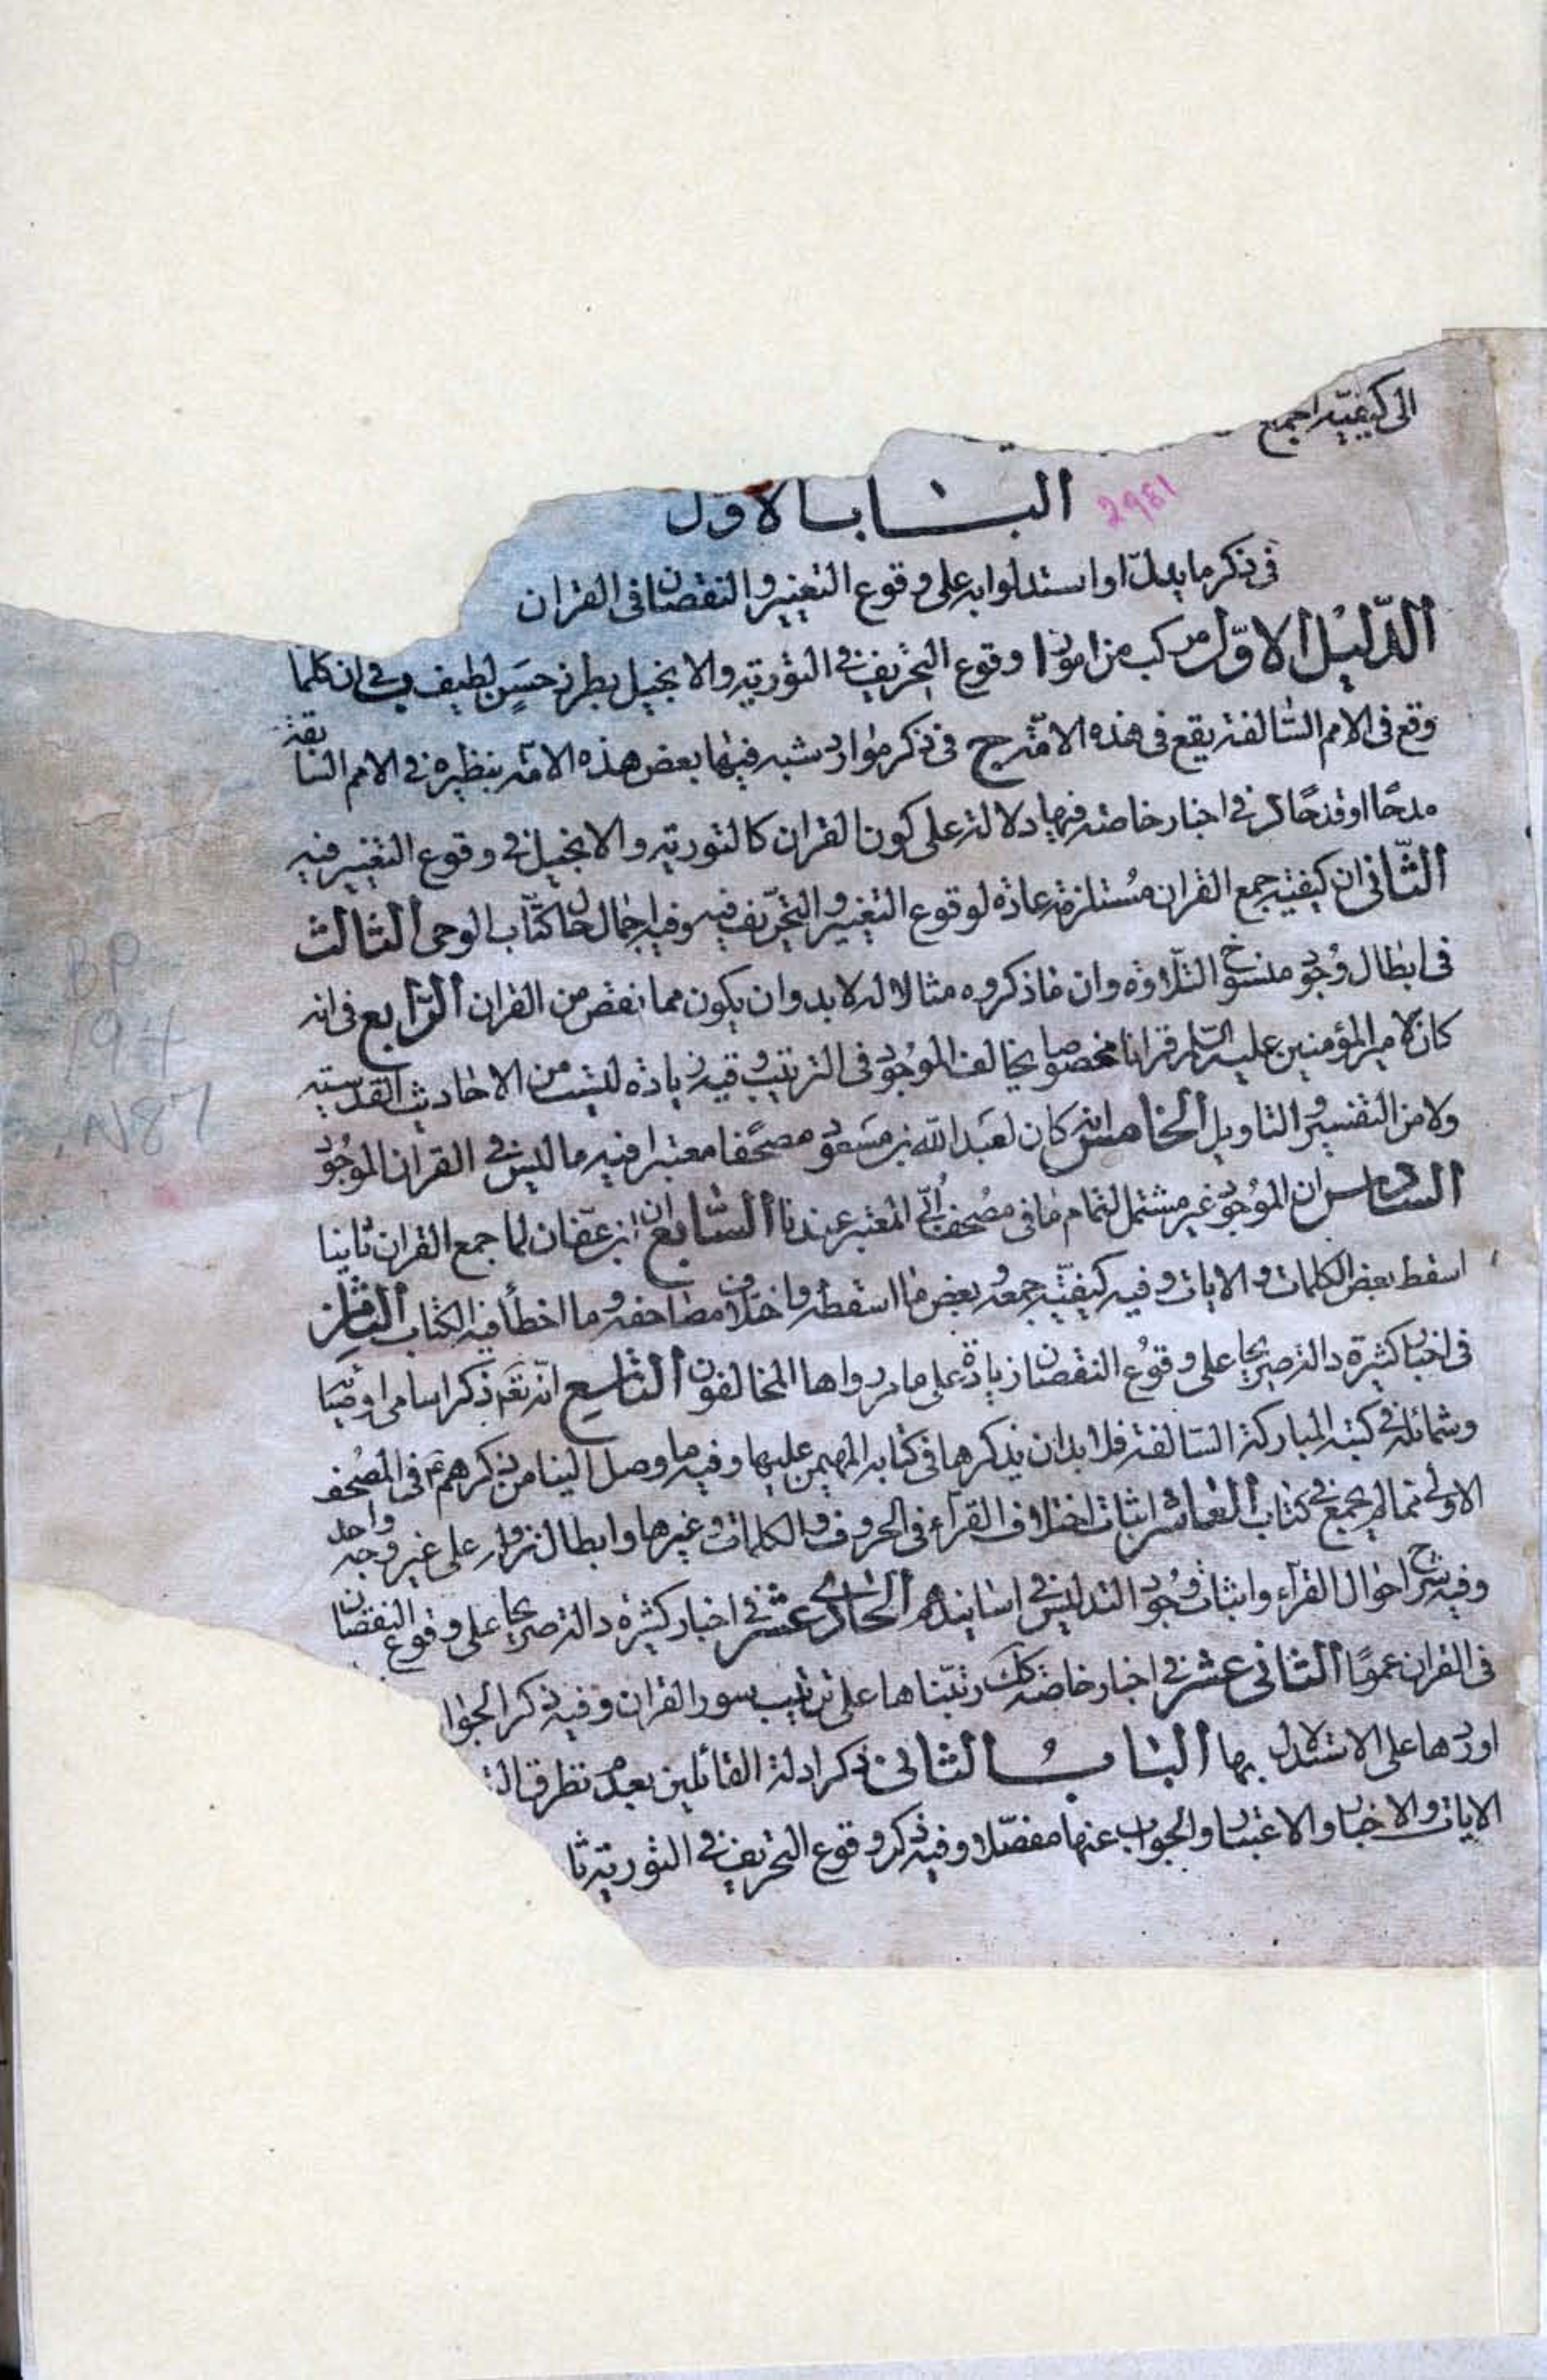 الى كيفية اجمع
2981
الباب الاول
فى ذكر ما يدل او استدلوا به على وقوع التغيير والنقصان فى القران
الدليل الاول مركب من امور ا وقوع التحريف فى التورية والانجيل بطرز حسن لطيف ب فى ان كلما
وقع فى الامم السالفة يقع فى هذه الامة ج فى ذكر موارد شبه فيها بعض هذه الامة بنظيره فى الامم السابقة
مدحا او قدحا د فى اخبار خاصة فيها دلالة على كون القران كالتورية والانجيل فى وقوع التغيير فيه
الثانى ان كيفية جمع القران مستلزمة عادة لوقوع التغيير والتحريف فيه وفيه اجمال حال كتاب الوحى الثالث
فى ابطال وجود منسوخ التلاوة وان ما ذكروه مثالا له لا بد وان يكون مما نقص من القران الرابع فى انه
كان لامير المؤمنين عليه السلم قرانا مخصوصا يخالف الموجود فى الترتيب وفيه زيادة ليست من الاحاديث القدسية
ولا من التفسير والتاويل الخامس انه كان لعبد الله بن مسعود مصحفا معتبرا فيه ما ليس فى القران الموجود
السادس ان الموجود غير مشتمل لتمام ما فى مصحف ابى المعتبر عندنا السابع ان ابن عفان لما جمع القران ثانيا
اسقط بعض الكلمات والايات وفيه كيفية جمعه وبعض ما اسقطه واختلاف مصاحفه وما اخطأ فيه الكتاب الثامن
فى اخبار كثيرة دالة صريحا على وقوع النقصان زيادة على ما مر رواها المخالفون التاسع انه تعم ذكر اسامى اوصيائه
وشمائله فى كتبه المباركة السالفة فلا بد ان يذكرها فى كتابه المهيمن عليها وفيه ما وصل الينا من ذكرهم ع فى المصحف
الاولى مما لم يجمع فى كتاب العاشر اثبات اختلاف القراء فى الحروف والكلمات وغيرها وابطال نزوله على غير وجه واحد
وفيه شرح احوال القراء واثبات وجود التدليس فى اسانيدهم الحادى عشر فى اخبار كثيرة دالة صريحا على وقوع النقصان
فى القران عموما الثانى عشر فى اخبار خاصة كك رتبناها على ترتيب سور القران وفيه ذكر الجوا
اوردها على الاستدلال بها الباب الثانى فى ذكر ادلة القائلين بعدم تطرق
الايات والاخبار والاعتبار والجواب عنها مفصلا وفيه ذكر وقوع التحريف فى التورية ثا
BP
194
.N87